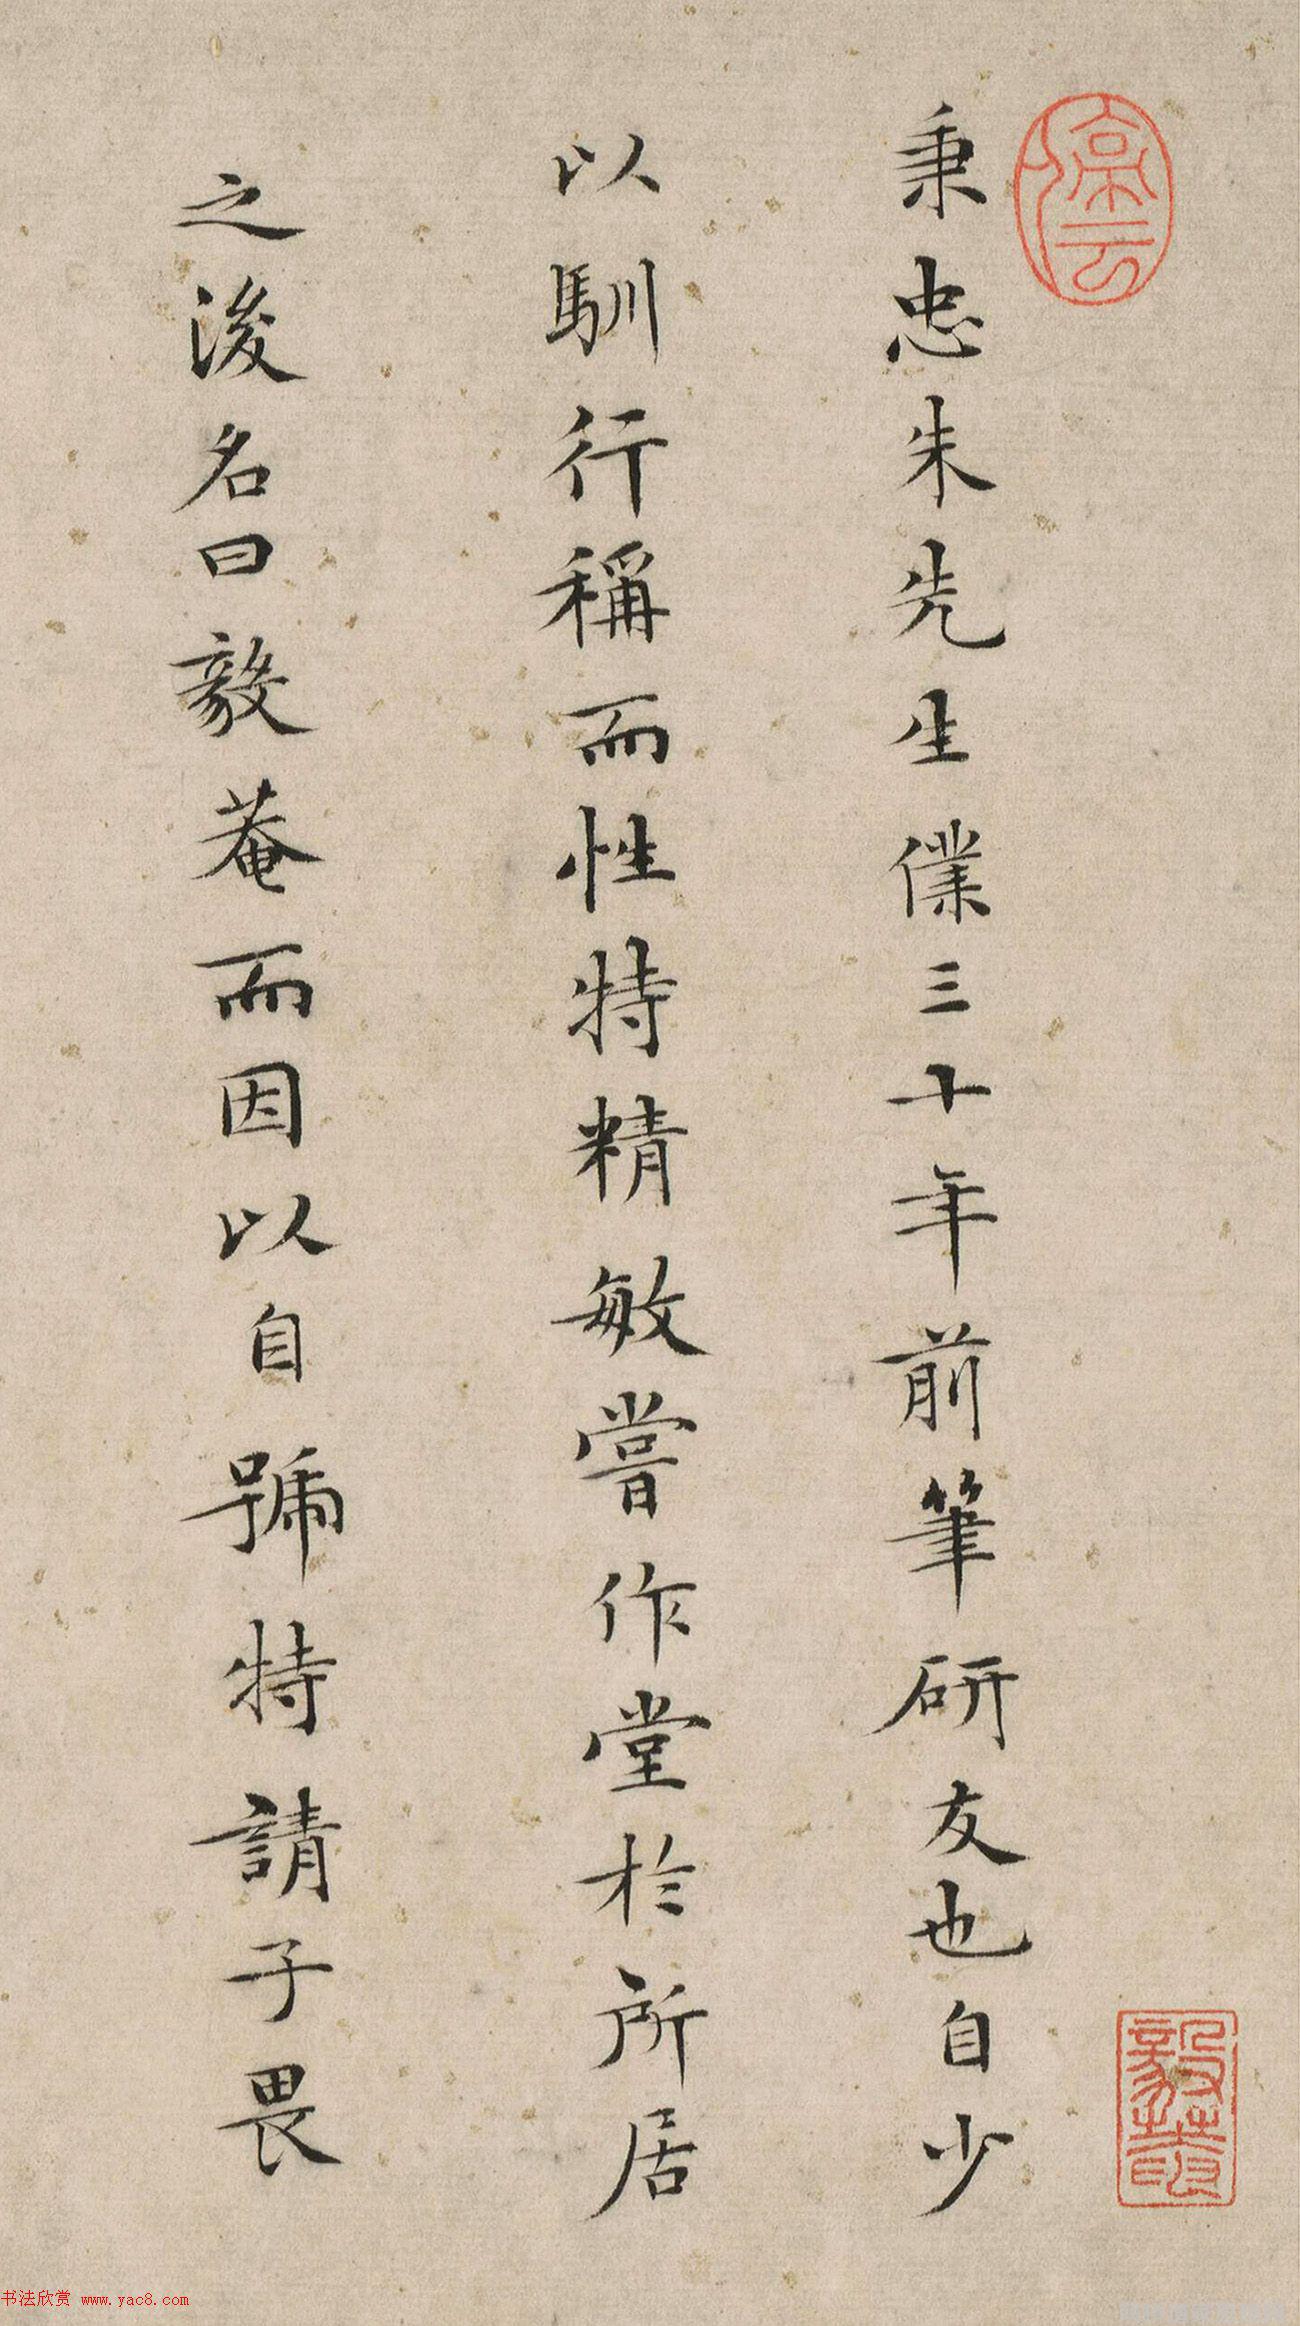 秉忠朱先生僕三十年前筆研友也自少
以馴行稱而性特精敏嘗作堂於所居
之後名曰毅菴而因以自號特請予畏
停云
书法欣赏 www.yac8.com